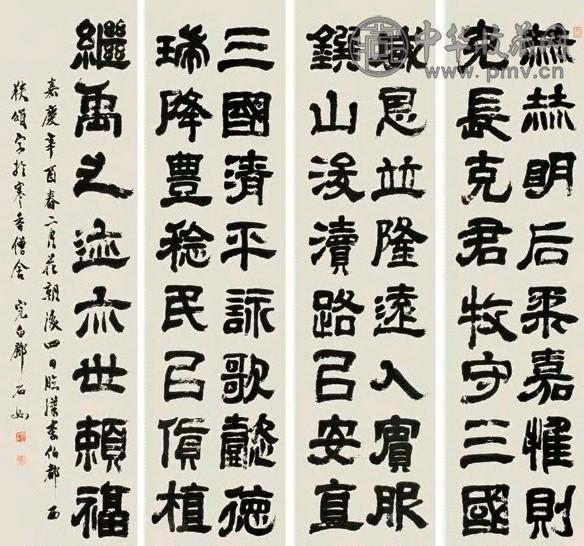 赫赫明后柔嘉惟則
克長克君牧守三國
威恩並隆遠人賓服
鐫山浚瀆路㠯安直
三國清平詠歌懿德
瑞降豊稔民㠯貨植
繼禹之迹亦世賴福
嘉慶辛酉春二月花朝後四日臨漢李伯都西
狹頌字於寒香僧舍 完白鄧石如
中华收藏网
www.pmv.cn